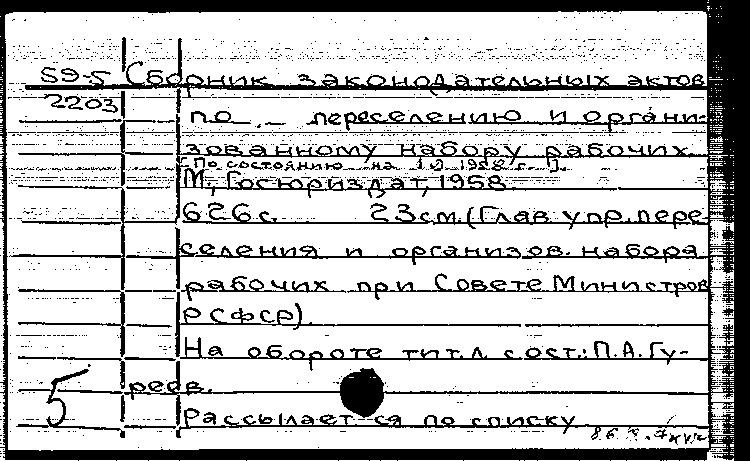 59-5 Сборник законодательных актов
2203 по переселению и органи-
зованному набору рабочих.
[По состоянию на 1958 г.].
М., Госюриздат, 1958.
626 с. 23 см. (Глав. упр. пере-
селения и организов. набора
рабочих при Совете Министров
РСФСР).
На обороте тит. л. сост.: П.А. Гу-
реев.
5
Рассылается по списку